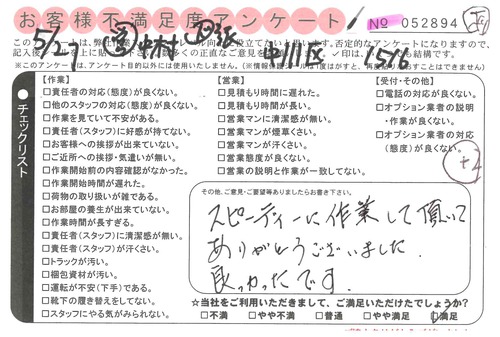 お客様不満足度アンケート
No 052894
5/27 中村 中川区 1516
※このアンケートは、アンケート目的以外には使用いたしません。
チェックリスト
【作業】
□責任者の対応(態度)が良くない。
□他のスタッフの対応(態度)が良くない。
□作業を見ていて不安がある。
□責任者(スタッフ)に好感が持てない。
□お客様への挨拶が出来ていない。
□ご近所への挨拶・気遣いが無い。
□作業開始前の内容確認がなかった。
□作業開始時間が遅れた。
□荷物の取り扱いが雑である。
□お部屋の養生が出来ていない。
□作業時間が長すぎる。
□責任者(スタッフ)に清潔感が無い。
□責任者(スタッフ)が汗くさい。
□トラックが汚い。
□梱包資材が汚い。
□運転が不安(下手)である。
□靴下の履き替えをしてない。
□スタッフにやる気がみられない。
【営業】
□見積もり時間に遅れた。
□見積もり時間が長い。
□営業マンに清潔感が無い。
□営業マンが煙草くさい。
□営業マンが汗くさい。
□営業態度が良くない。
□営業の説明と作業が一致してない。
【受付・その他】
□電話の対応が良くない。
□オプション業者の説明
・作業が良くない。
□オプション業者の対応
(態度)が良くない。
+2
その他、ご意見・ご要望等ありましたらお書き下さい。
スピーディーに作業して頂いて
ありがとうございました.
良かったです.
☆当社をご利用いただきまして、ご満足いただけたでしょうか?
□不満 □やや不満 □普通 □やや満足 □満足